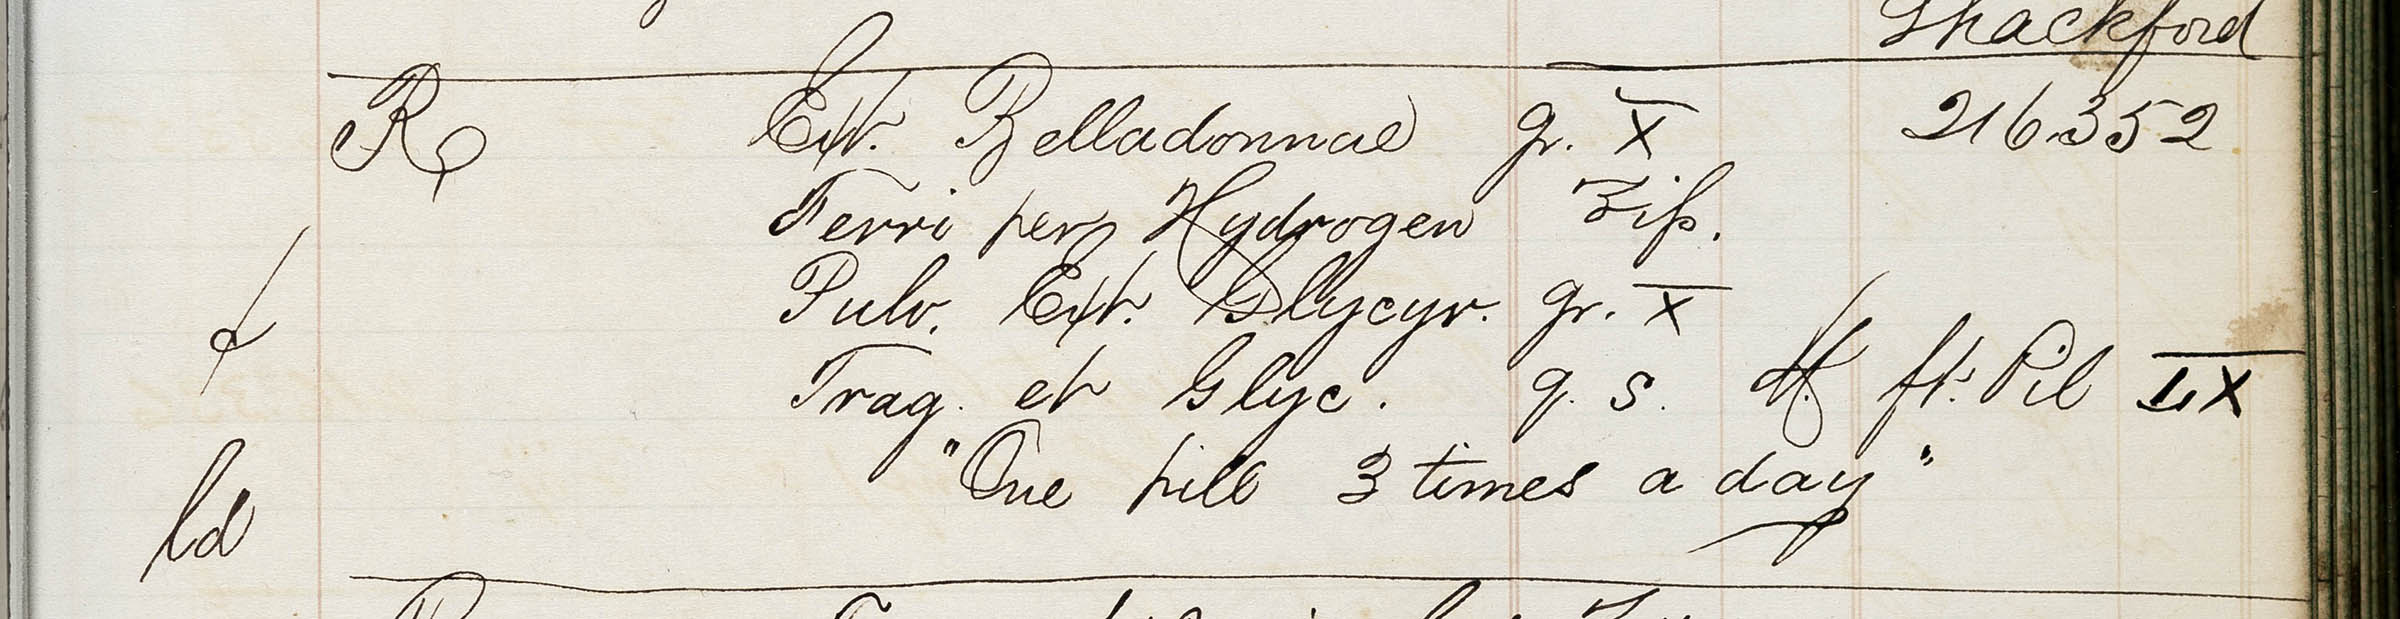 Shackford
℞ Ext. Belladonnae gr. X 216352
Ferri per Hydrogen ʒiß.
Pulv. Ext. Glycyr. gr. X
Trag. et Glyc. q. s. M. ft. Pil LX
"One pill 3 times a day"